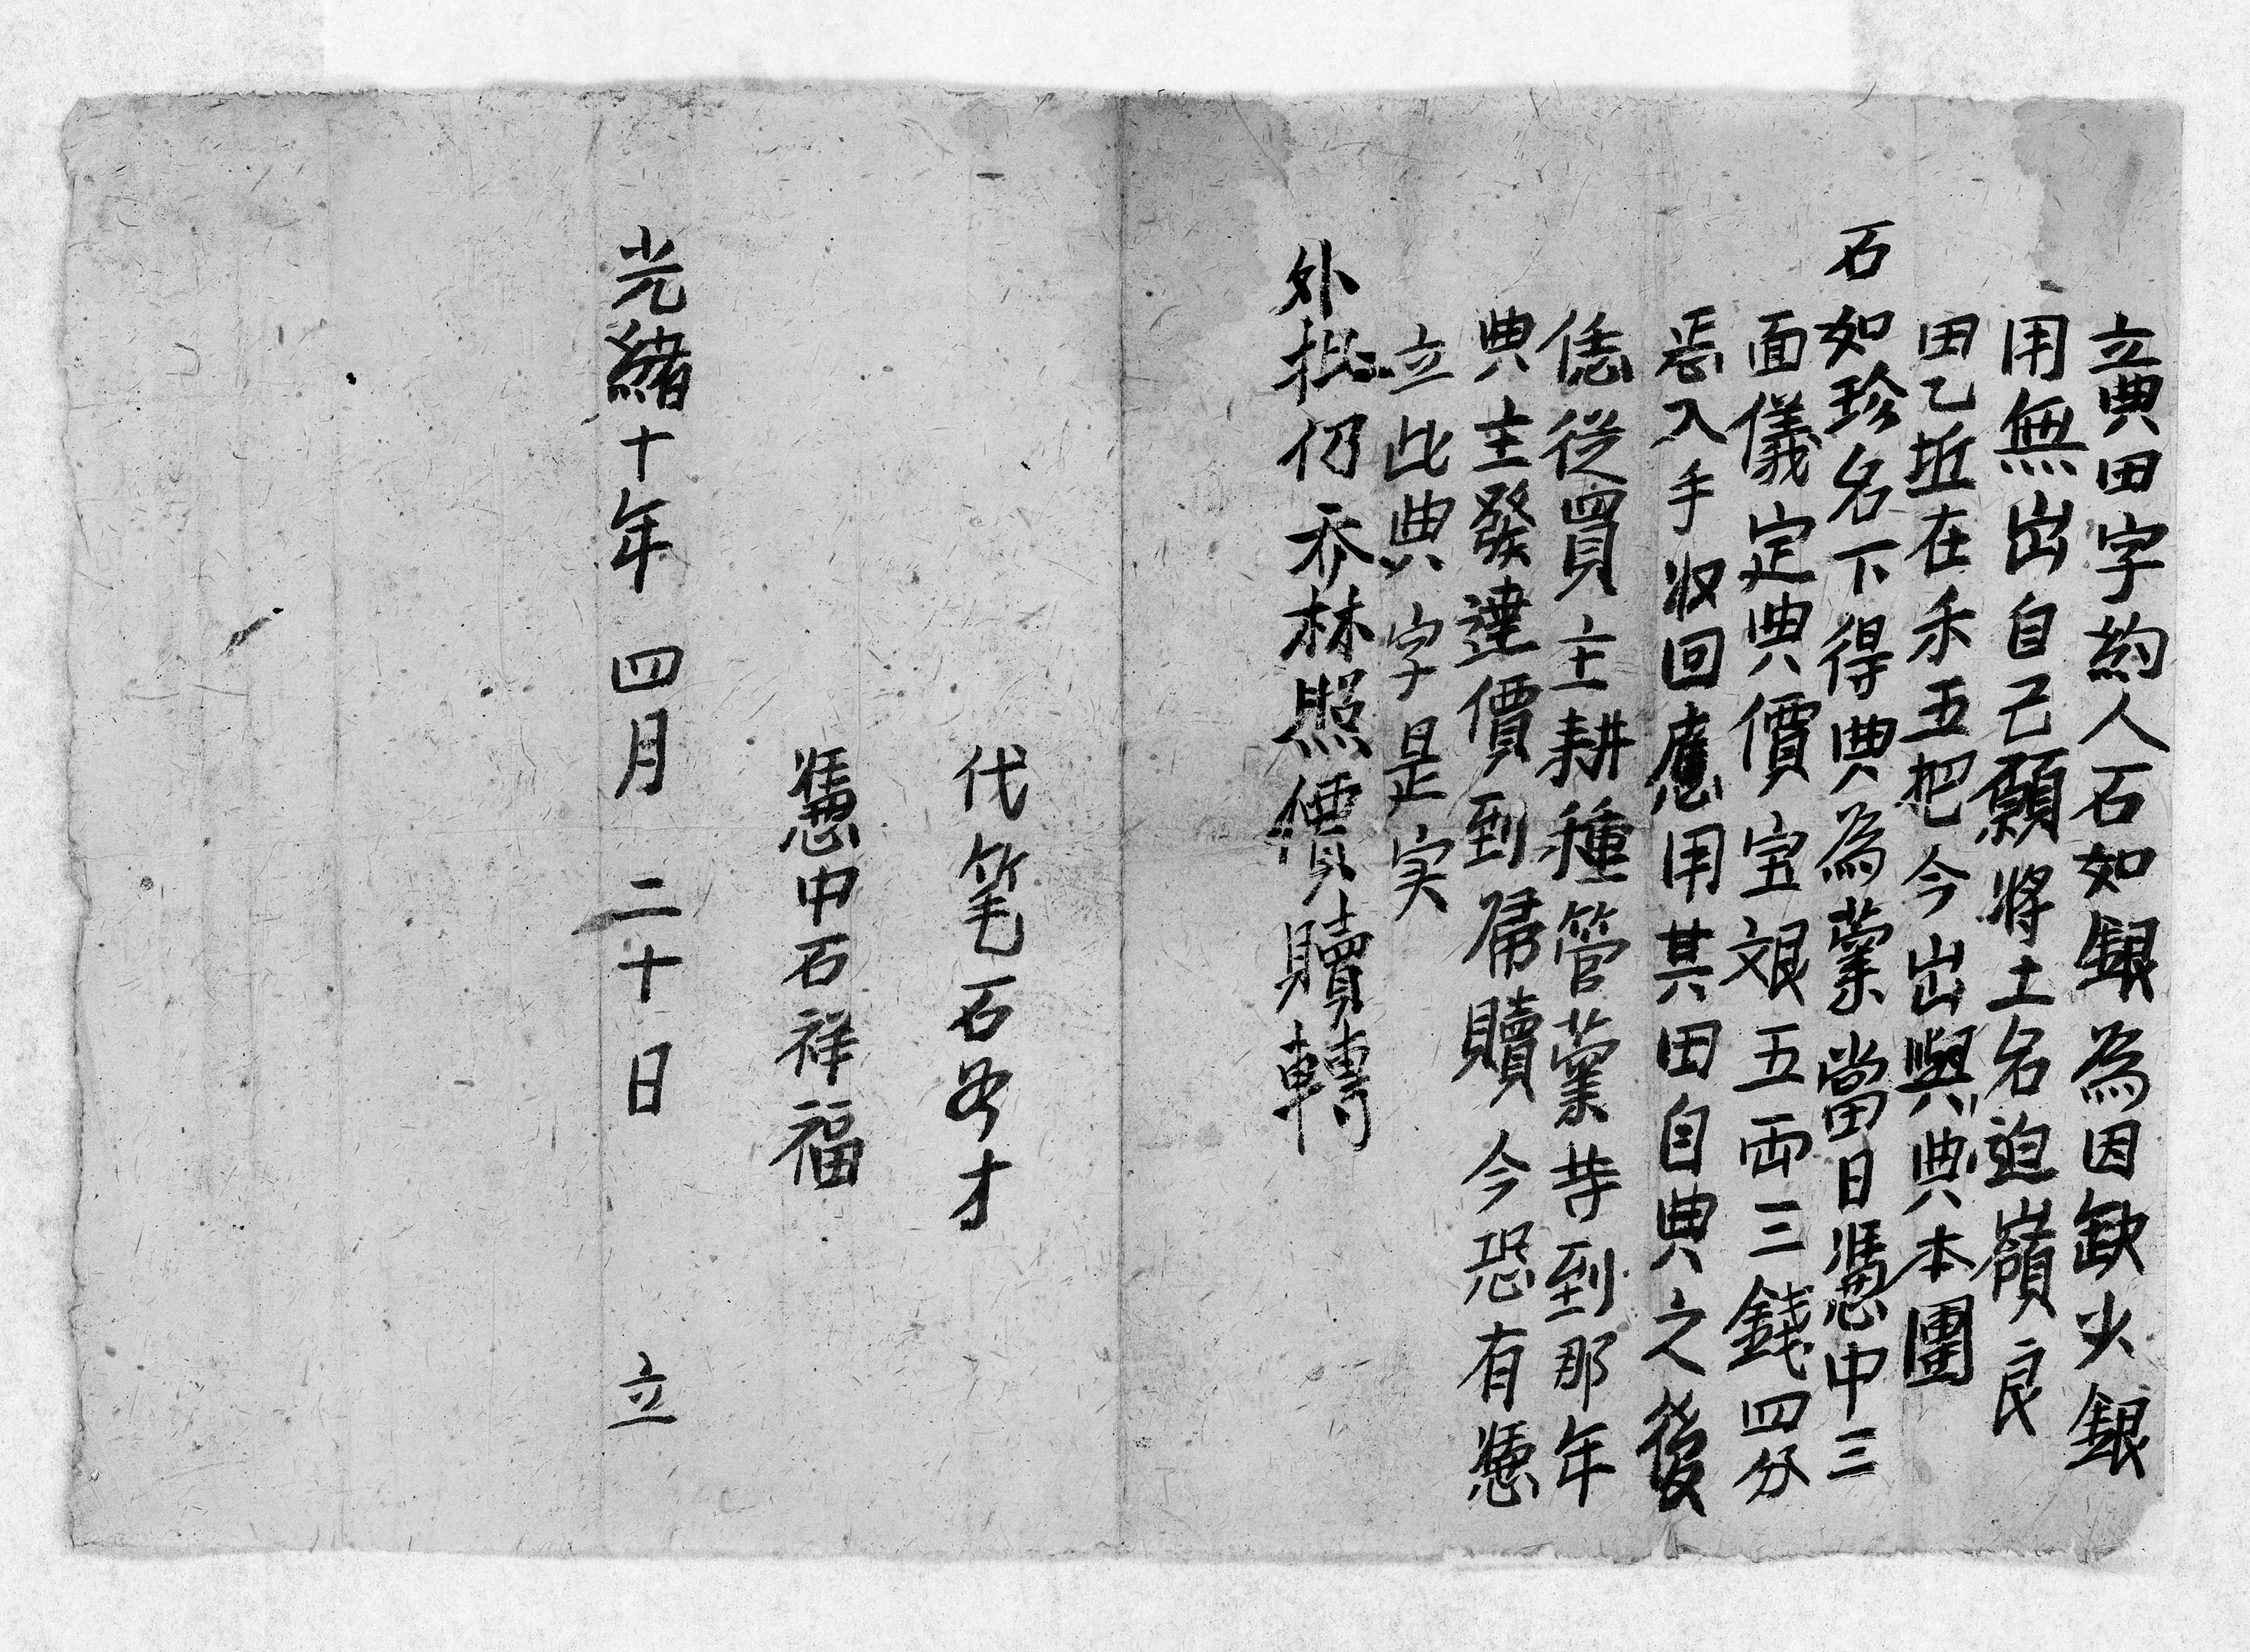 立典田字約人石如銀為因缺少銀
用無出自己願將土名迫嶺良
田乙坵在禾五把今出與典本團
石如珍名下得典為業當日憑中三
面儀定典價宝艮五両三錢四分
焉入手収回應用其田自典之後
恁從買主耕種管業訔到那年
典主發達價到歸贖今恐有憑
立此典字是实
外批仍禾林照價贖轉
代笔石名才
憑中石祥福
光緒十年四月二十日立